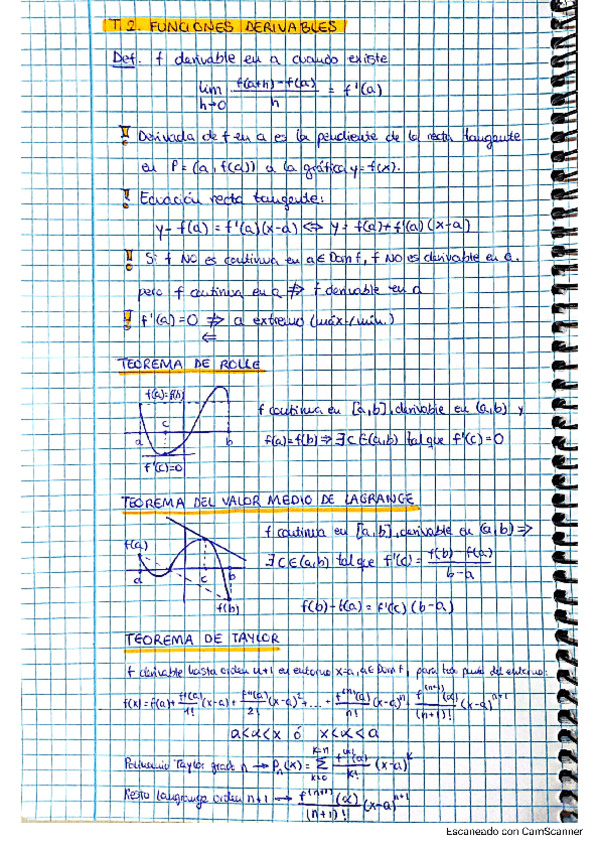 T.2. FUNCIONES DERIVABLES
Def. f derivable en a cuando existe
lim h→0 f(a+h)-f(a) / h = f'(a)
! Derivada de f en a es la pendiente de la recta tangente
en P=(a, f(a)) a la gráfica y=f(x).
! Ecuación recta tangente:
y-f(a)=f'(a)(x-a) ⇔ y=f(a)+f'(a)(x-a)
! Si f NO es continua en a∈Dom f, f NO es derivable en a.
pero f continua en a ⇏ f derivable en a
! f'(a)=0 ⇏ a extremo (máx./mín.)
⇐
TEOREMA DE ROLLE
f(a)=f(b)
c
a
b
f'(c)=0
f continua en [a,b], derivable en (a,b) y
f(a)=f(b) ⇒ ∃c∈(a,b) tal que f'(c)=0
TEOREMA DEL VALOR MEDIO DE LAGRANGE
f(a)
a
c
b
f(b)
f continua en [a,b], derivable en (a,b) ⇒
∃c∈(a,b) tal que f'(c) = f(b)-f(a) / b-a
f(b)-f(a)=f'(c)(b-a)
TEOREMA DE TAYLOR
f derivable hasta orden n+1 en entorno x=a, a∈Dom f, para punto del entorno:
f(x)=f(a)+ f'(a)/1! (x-a)+ f''(a)/2! (x-a)²+...+ f⁽ⁿ⁾(a)/n! (x-a)ⁿ f⁽ⁿ⁺¹⁾(α)/(n+1)! (x-a)ⁿ⁺¹
a<α<x ó x<α<a
Polinomio Taylor grado n → Pₙ(x)= k=n Σ k=0 f⁽ᵏ⁾(a)/k! (x-a)ᵏ
Resto Langrange orden n+1 → f⁽ⁿ⁺¹⁾(α)/(n+1)! (x-a)ⁿ⁺¹
Escaneado con CamScanner